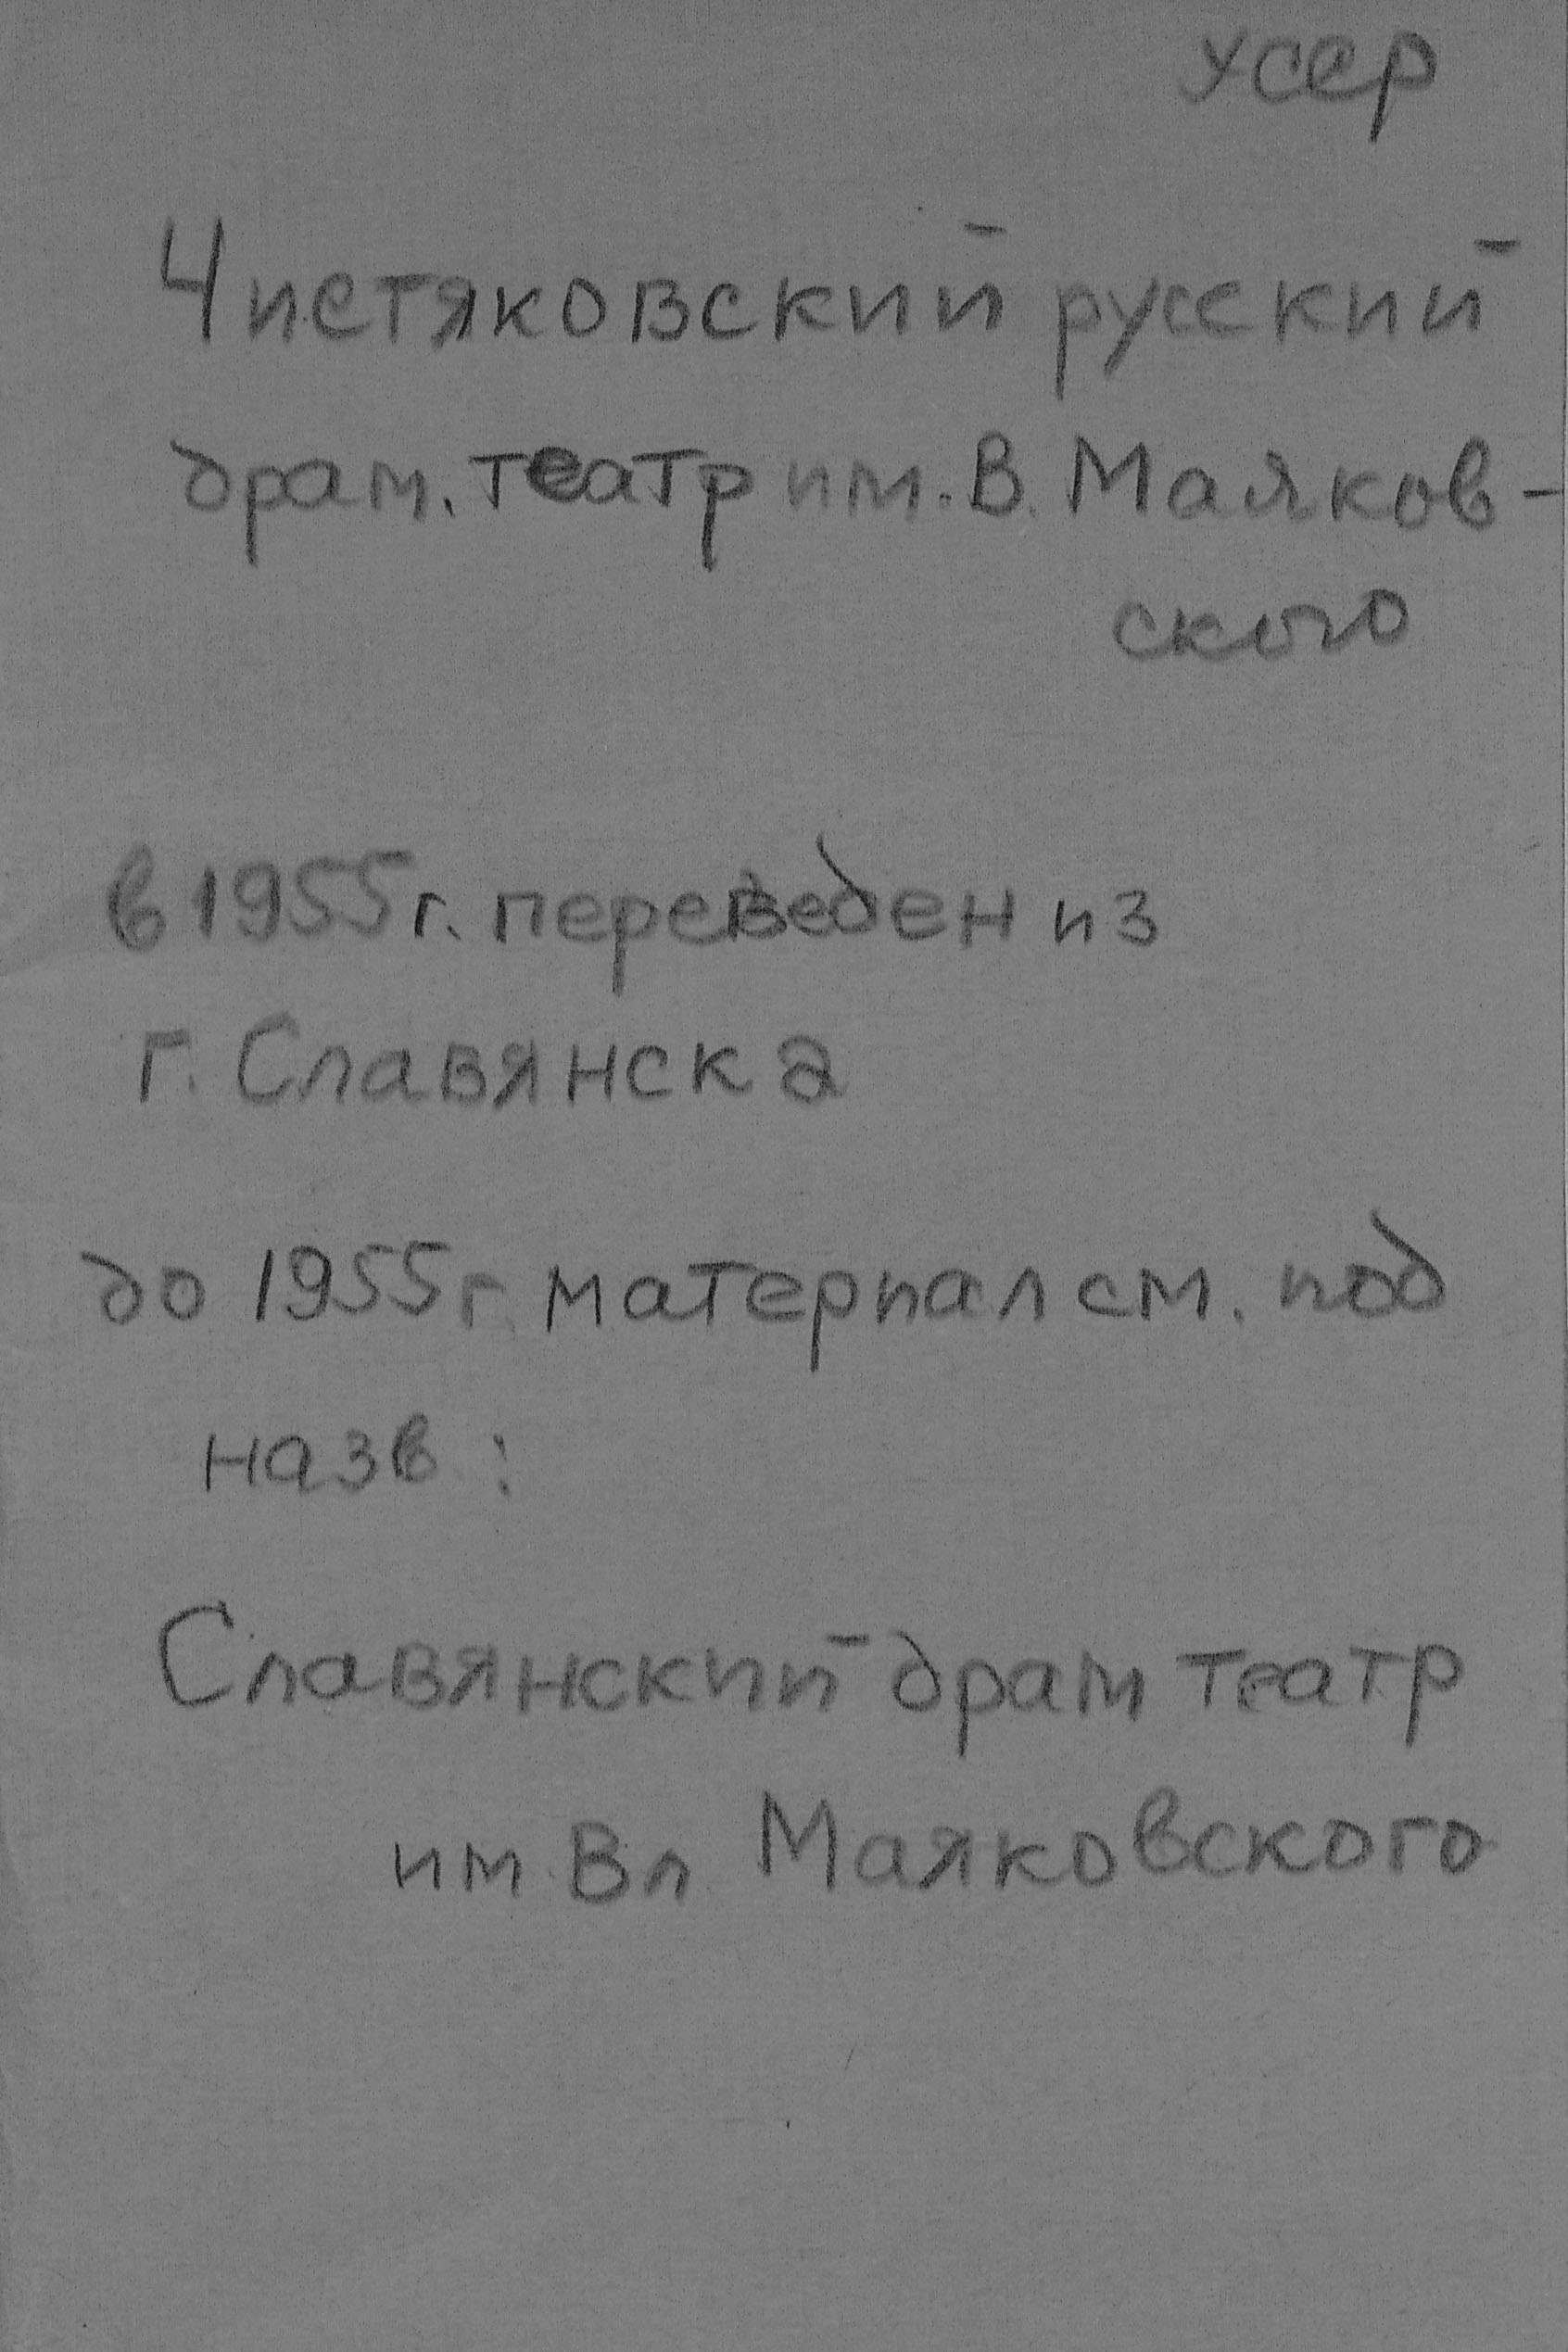 УССР
Чистяковский русский
драм. театр им. В. Маяков-
ского
в 1955 г. переведен из
г. Славянска
до 1955 г. материал см. под
назв:
Славянский драм театр
им. Вл. Маяковского